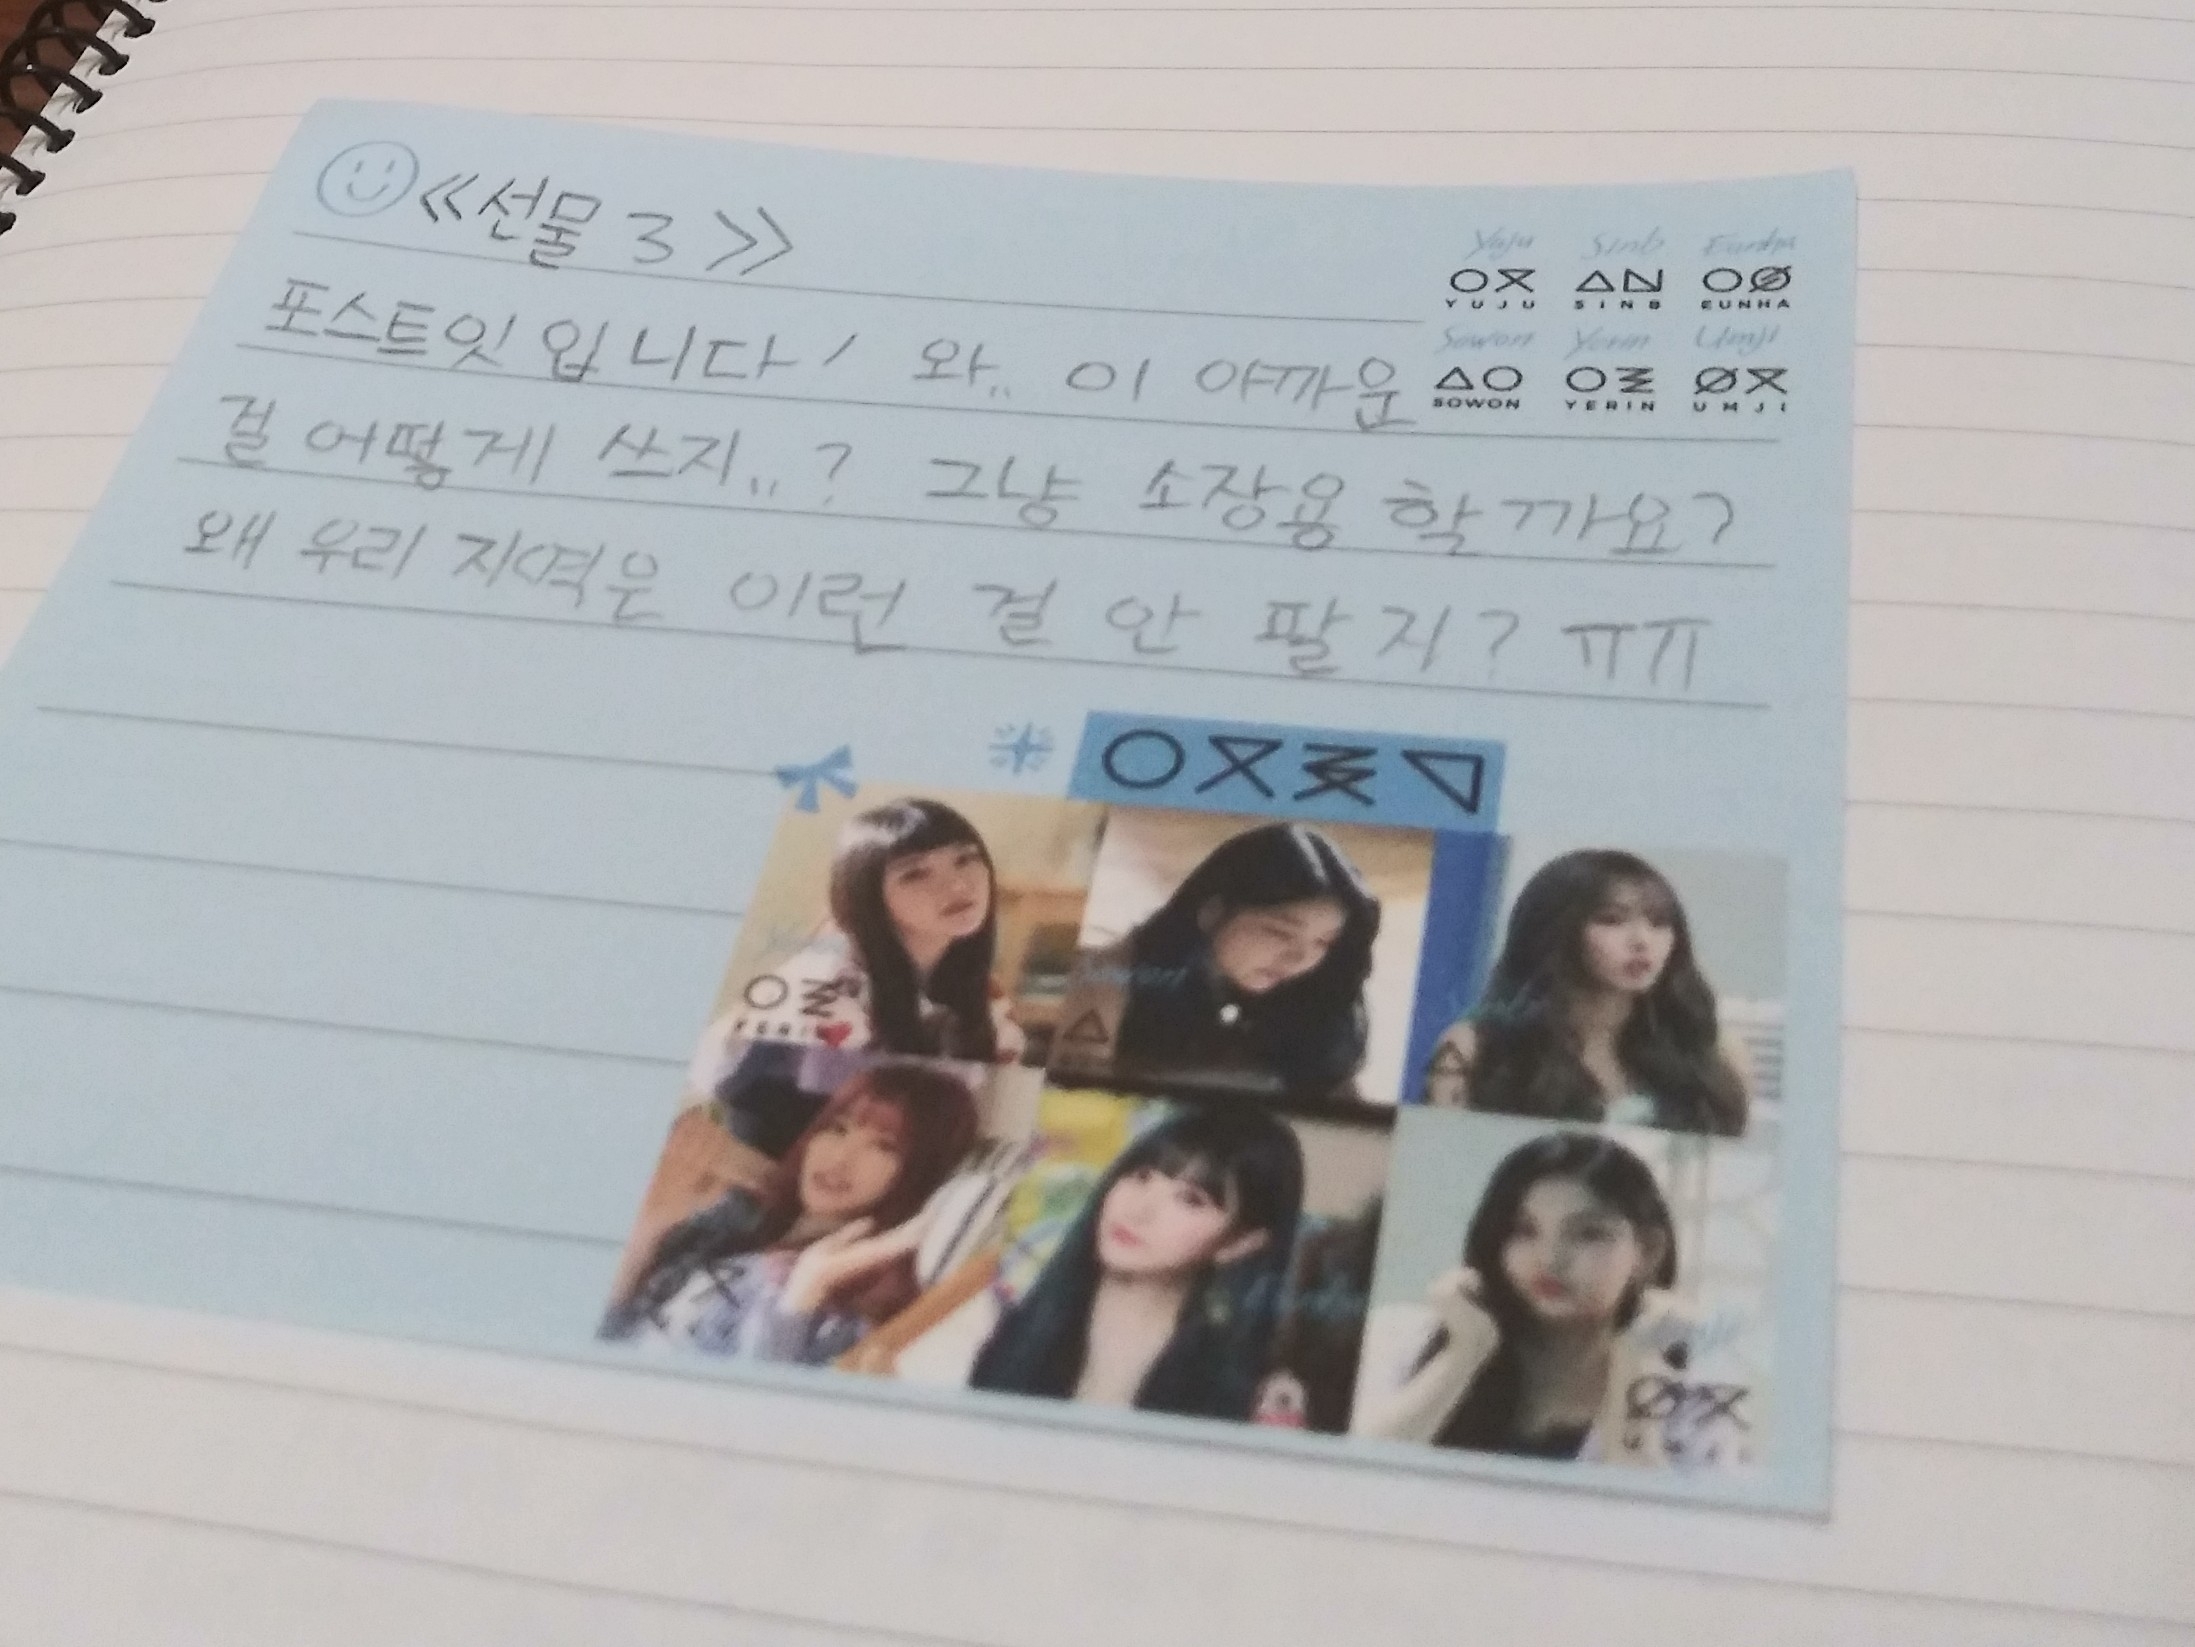 ≪선물 3≫
포스트잇입니다! 와.. 이 아까운
걸 어떻게 쓰지..? 그냥 소장용 할까요?
왜 우리 지역은 이런 걸 안 팔지? ㅠㅠ
Yuju Sinb Eunha
YUJU SINB EUNHA
Sowon Yerin Umji
SOWON YERIN UMJI
Sowon